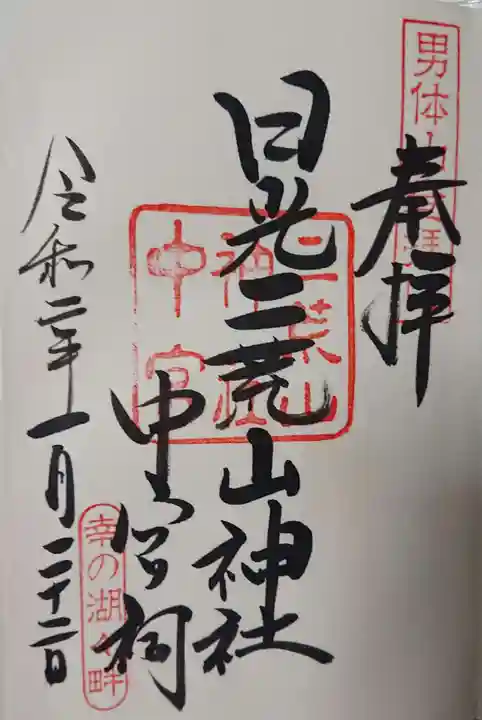 男体山
奉拝
日光二荒山神社
二荒山
神社
中宮
中宮祠
幸の湖々畔
令和二年一月二十二日